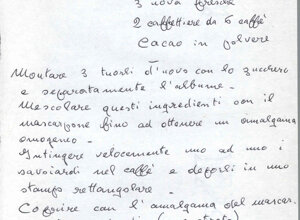 3 uova fresche
2 caffettiere da 6 caffè
Cacao in polvere
Montare 3 tuorli d'uovo con lo zucchero
e separatamente l'albume.
Mescolare questi ingredienti con il
mascarpone fino ad ottenere un amalgama
omogeneo.
Intingere velocemente uno ad uno i
savoiardi nel caffè e deporli in uno
stampo rettangolare.
Coprire con l'amalgama del mascar-